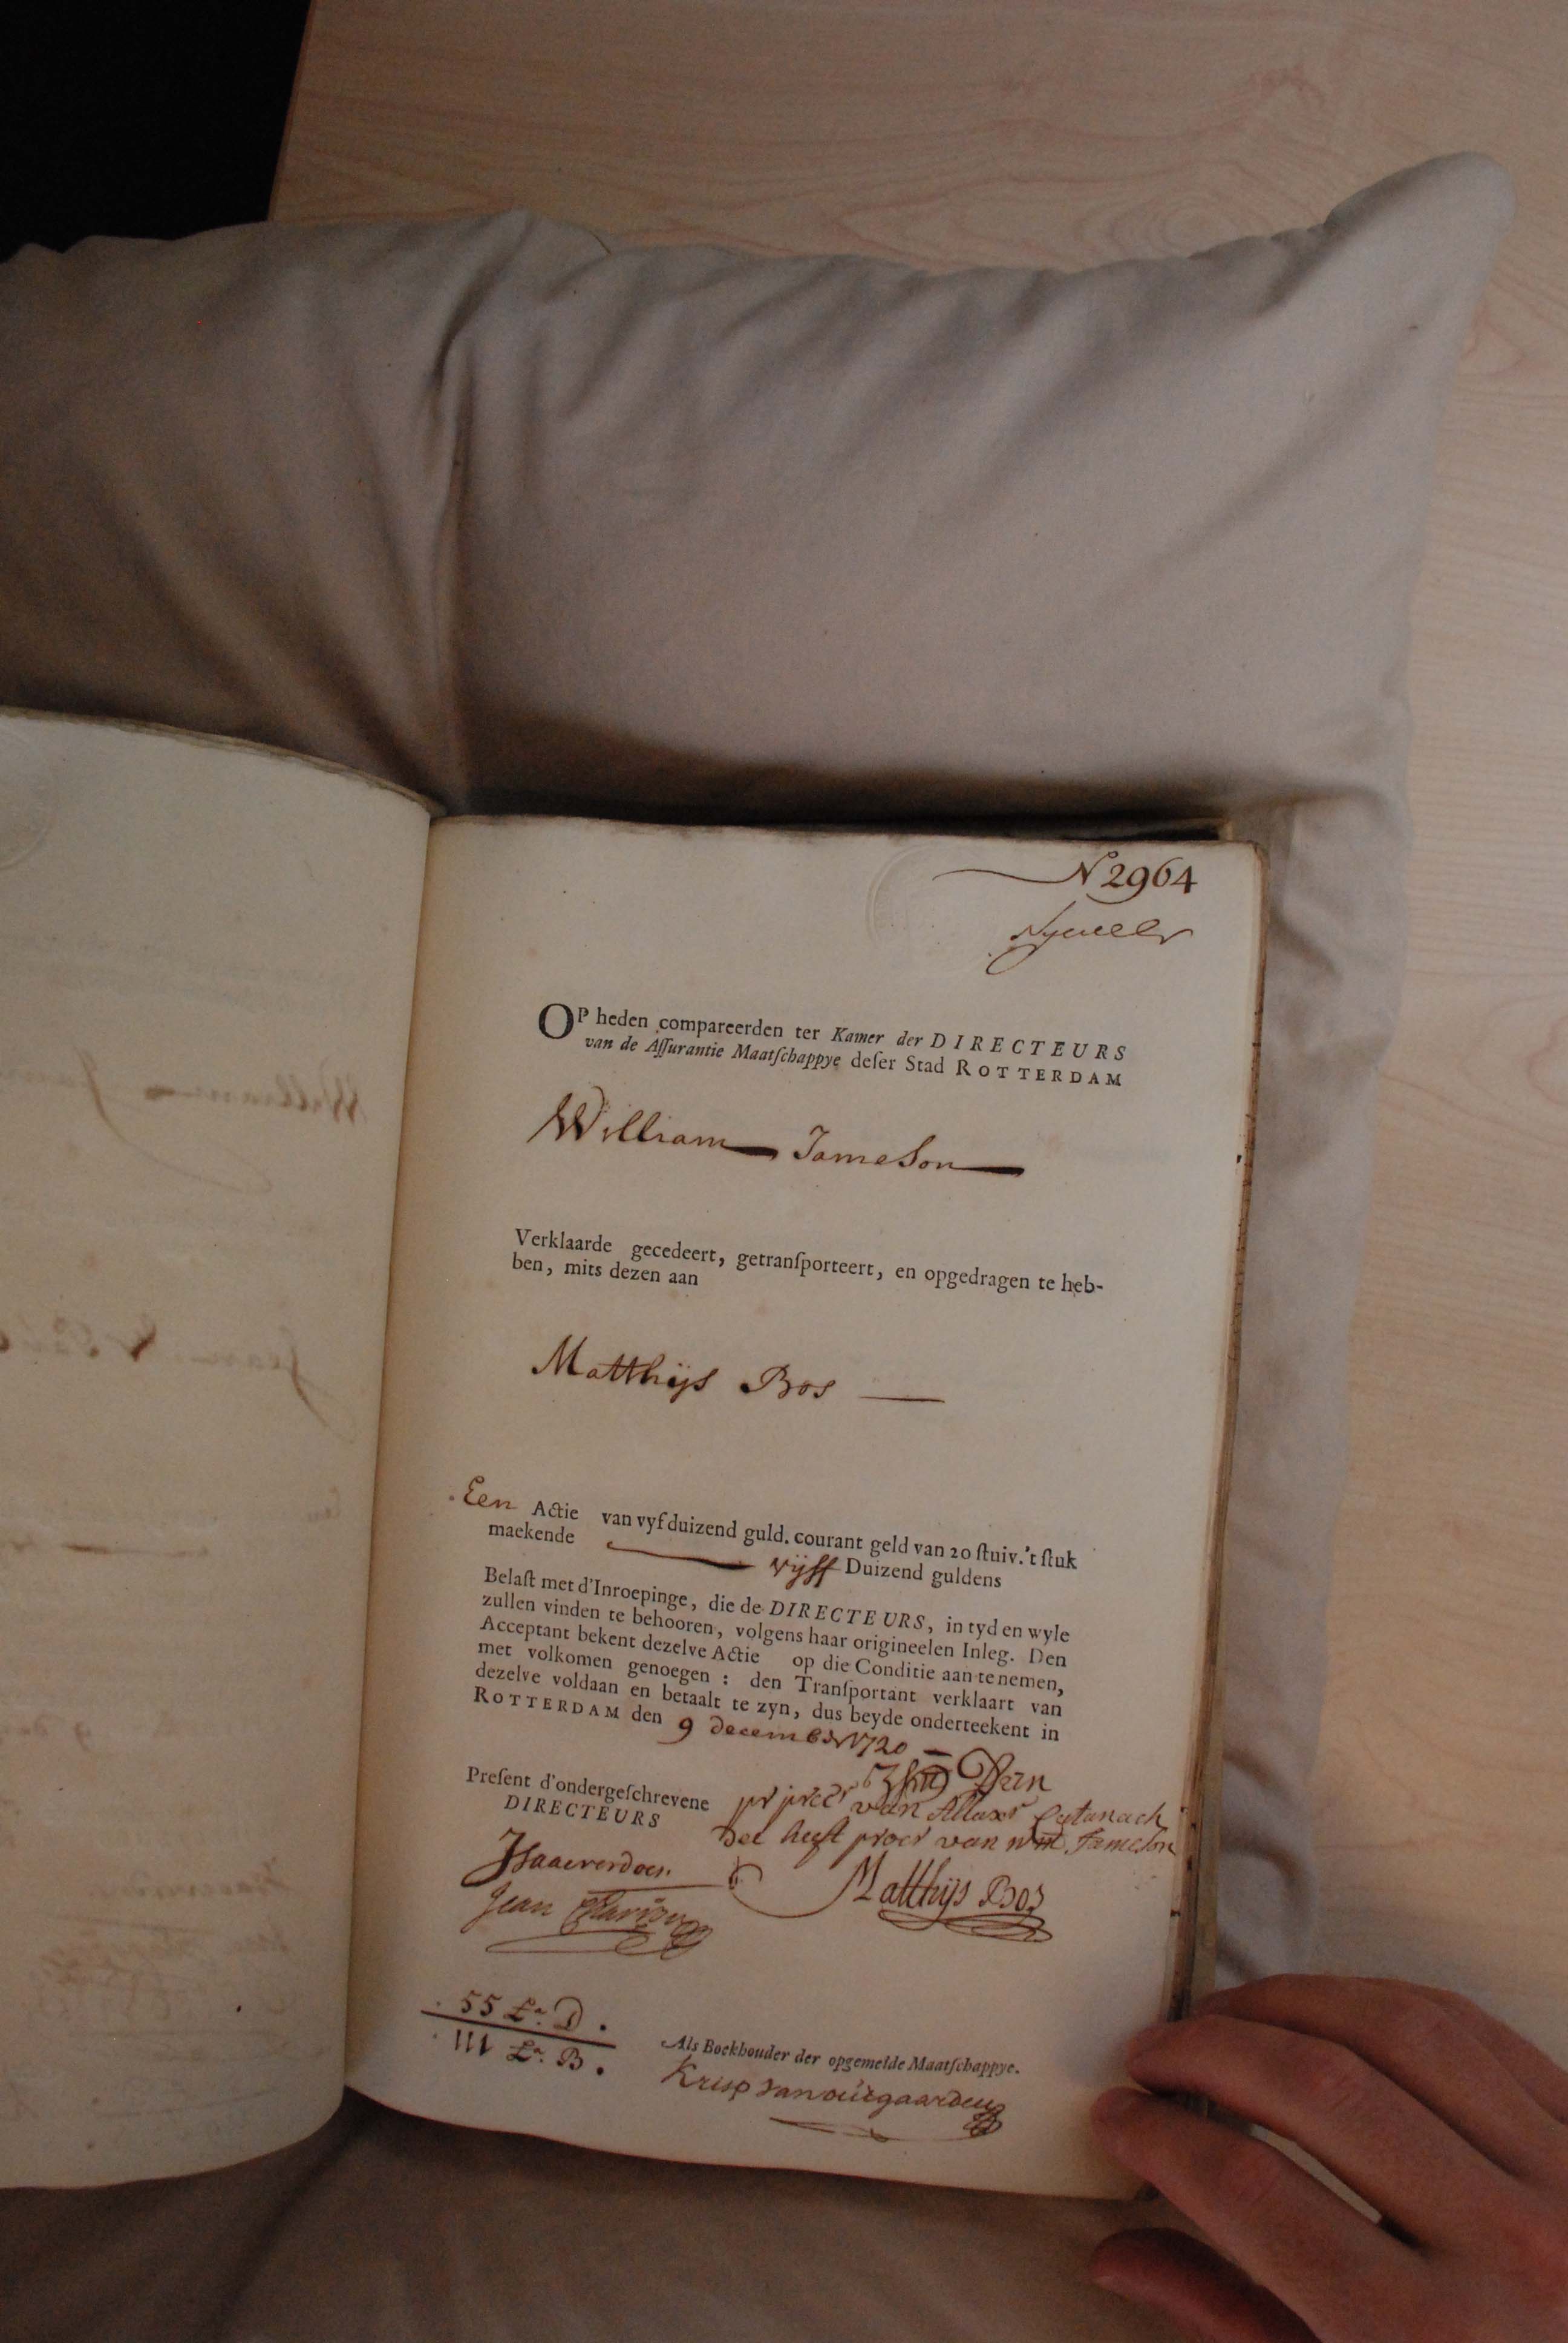 N 2964
OP heden compareerden ter Kamer der DIRECTEURS
van de Aſſurantie Maatſchappye deſer Stad ROTTERDAM
William Jameson
Verklaarde gecedeert, getranſporteert, en opgedragen te heb-
ben, mits dezen aan
Matthijs Bos
Een Actie van vyf duizend guld. courant geld van 20 ſtuiv. 't ſtuk
maekende vijff Duizend guldens
Belaſt met d'Inroepinge, die de DIRECTEURS, in tyd en wyle
zullen vinden te behooren, volgens haar origineelen Inleg. Den
Acceptant bekent dezelve Actie op die Conditie aan te nemen,
met volkomen genoegen : den Tranſportant verklaart van
dezelve voldaan en betaalt te zyn, dus beyde onderteekent in
ROTTERDAM den 9 december 1720
Preſent d'ondergeſchrevene
DIRECTEURS
van Allaxr Catanach
Die heeft procr van Wm. Jameson
Matthijs Bos
Jean
55 La. D.
111 La. B.
Als Boekhouder der opgemelde Maatſchappye.
Krisp van outgaarden